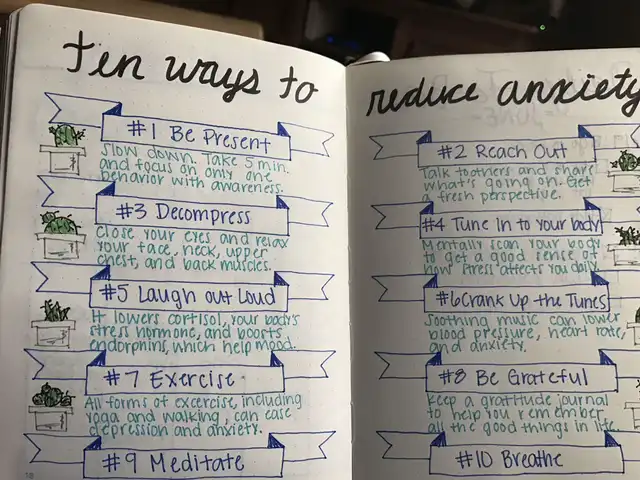 ten ways to
#1 Be Present
Slow down. Take 5 min.
and focus on only one
behavior with awareness.
#3 Decompress
Close your eyes and relax
your face, neck, upper
chest, and back muscles.
#5 Laugh out Loud
It lowers cortisol, your body's
stress hormone, and boosts
endorphins, which help mood.
#7 Exercise
All forms of exercise, including
yoga and walking, can ease
depression and anxiety.
#9 Meditate
reduce anxiety
#2 Reach Out
Talk to others and share
what's going on. Get
a fresh perspective.
#4 Tune in to your body
Mentally scan your body
to get a good sense of
how stress affects you daily
#6 Crank Up the Tunes
Soothing music can lower
blood pressure, heart rate,
and anxiety.
#8 Be Grateful
Keep a gratitude journal
to help you remember
all the good things in life.
#10 Breathe